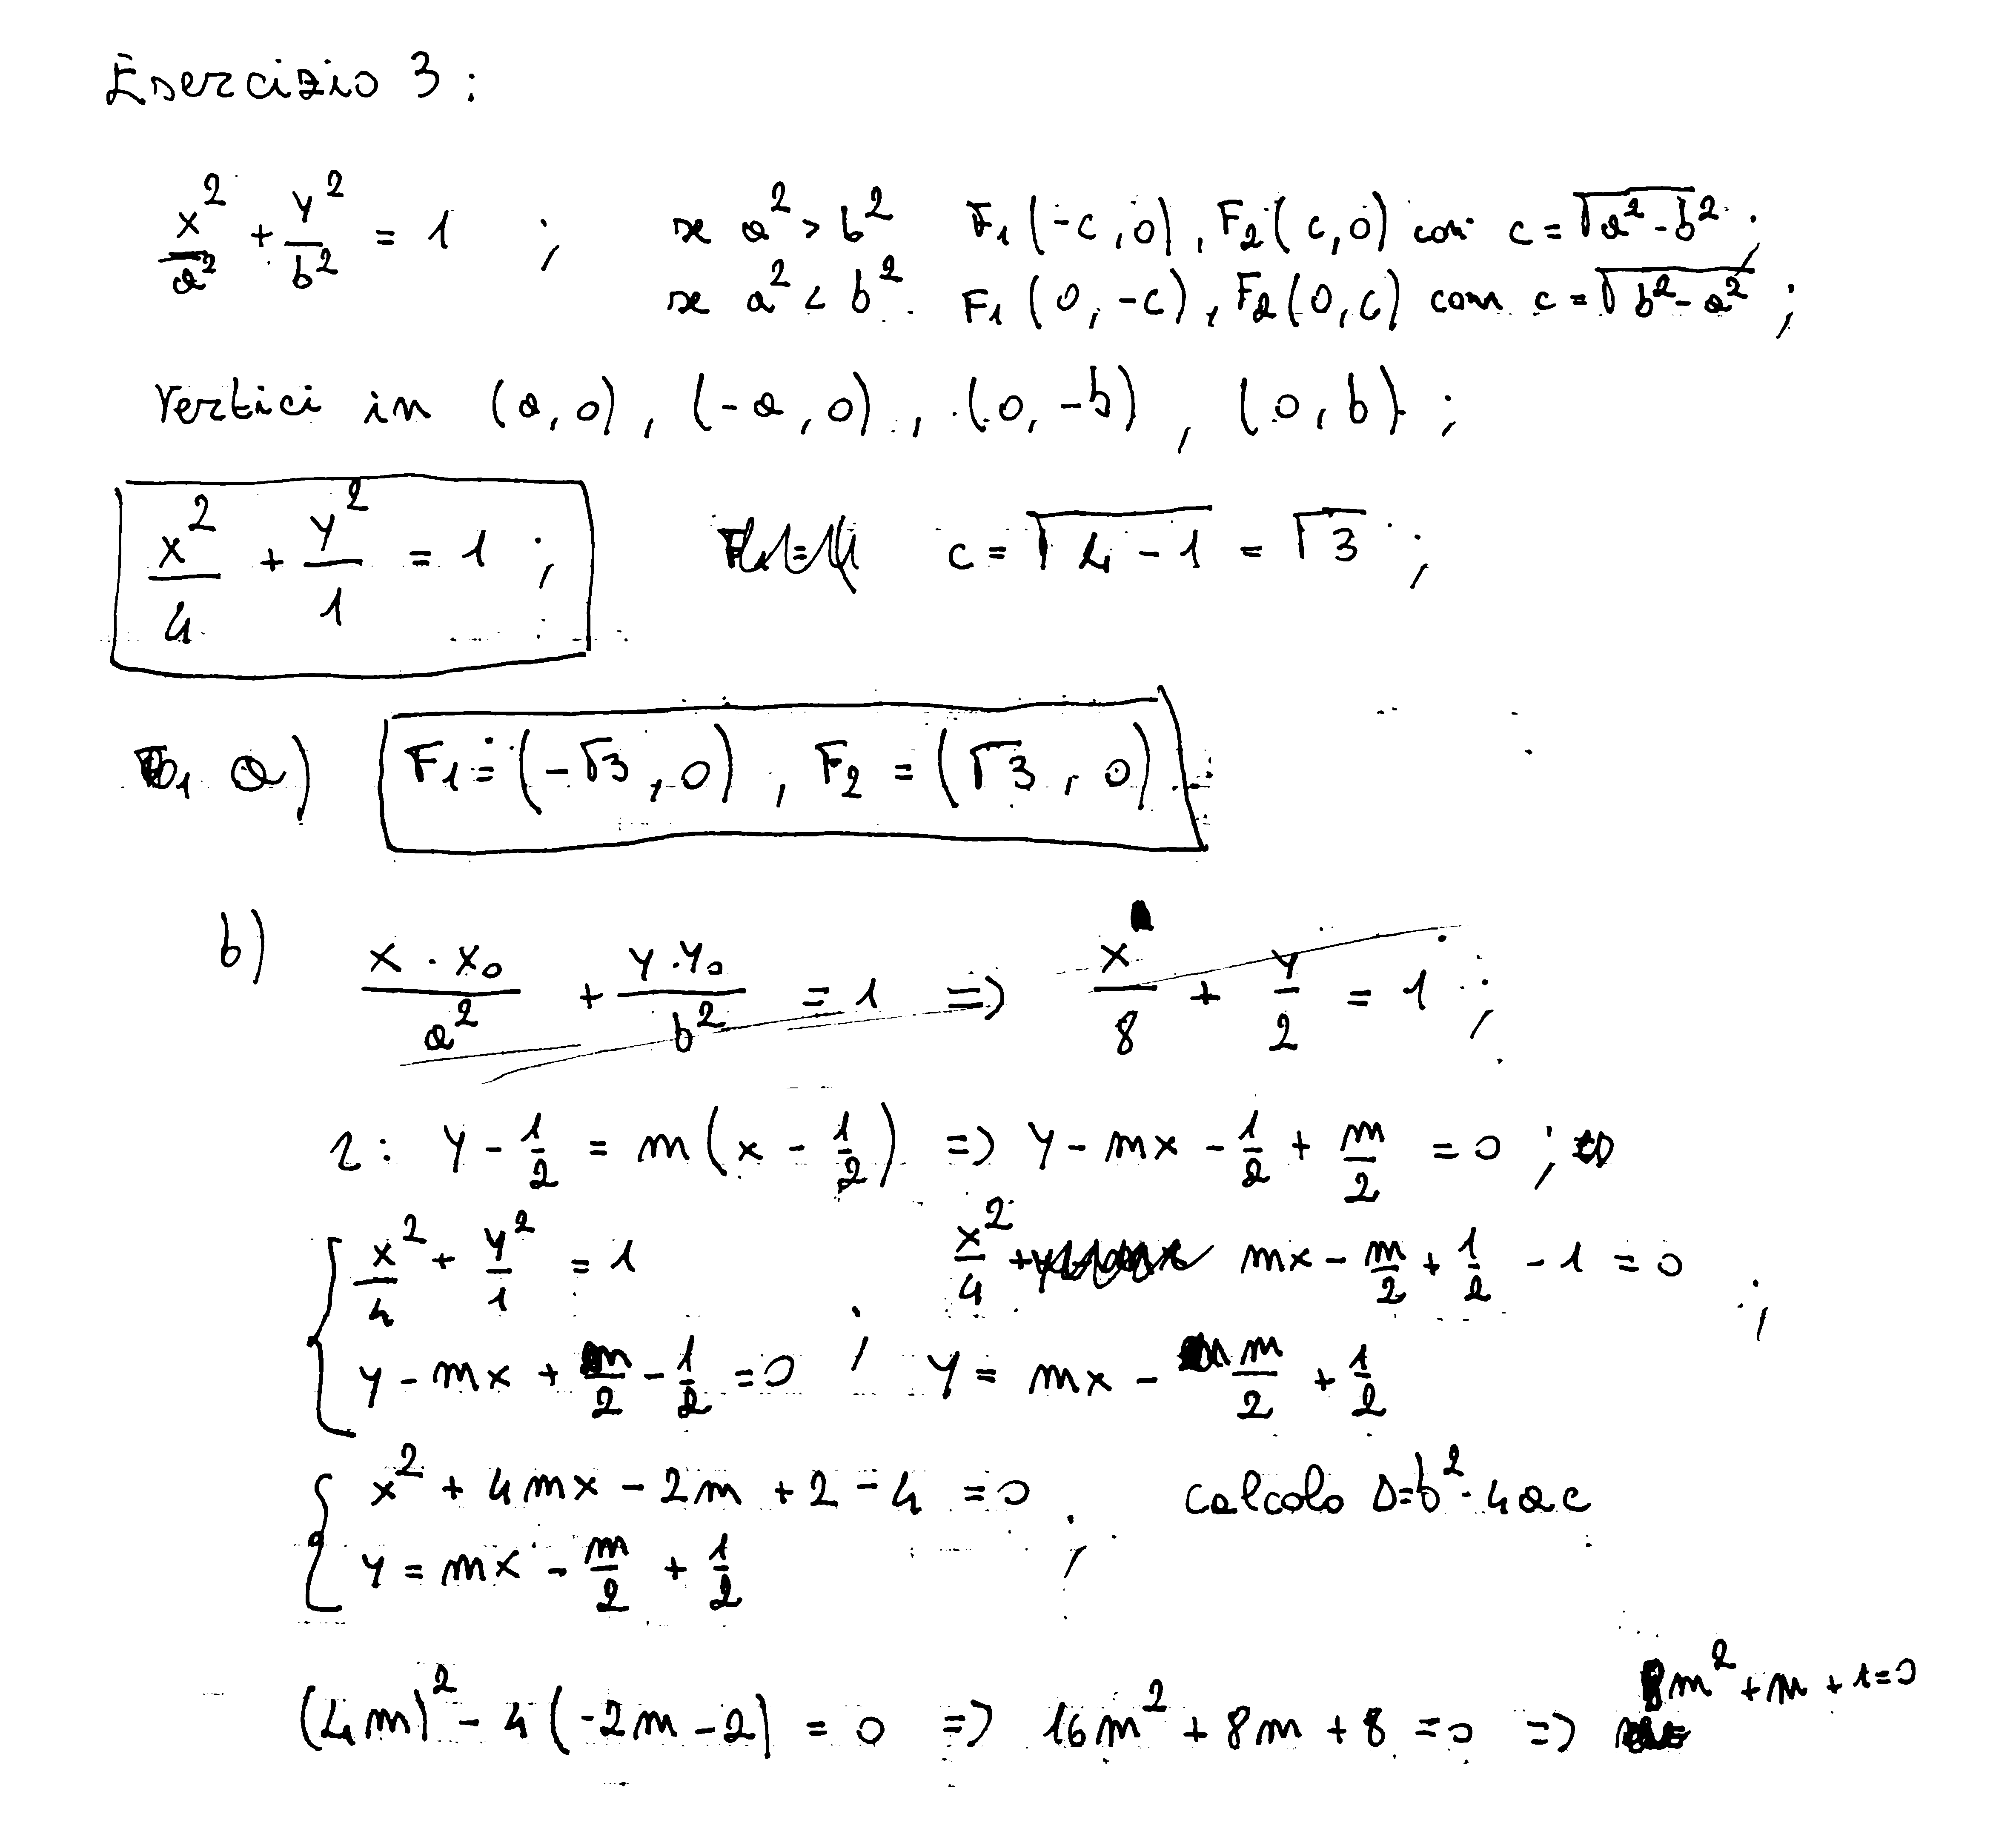 Esercizio 3:
x²/a² + y²/b² = 1 ; se a² > b² F₁(-c,0), F₂(c,0) con c = √(a²-b²);
se a² < b². F₁(0,-c), F₂(0,c) con c = √(b²-a²);
Vertici in (a,0), (-a,0), (0,-b), (0,b);
x²/4 + y²/1 = 1 ; c = √(4-1) = √3 ;
a) F₁ = (-√3,0), F₂ = (√3,0)
b) x·x₀/a² + y·y₀/b² = 1 => x/8 + y/2 = 1 ;
r: y - 1/2 = m(x - 1/2) => y - mx - 1/2 + m/2 = 0 ;
{ x²/4 + y²/1 = 1 x²/4 + mx - m/2 + 1/2 - 1 = 0 ;
y - mx + m/2 - 1/2 = 0 ; y = mx - m/2 + 1/2
{ x² + 4mx - 2m + 2 - 4 = 0 ; calcolo Δ=b²-4ac
y = mx - m/2 + 1/2
(4m)² - 4(-2m-2) = 0 => 16m² + 8m + 8 = 0 => m² + m + 1 = 0